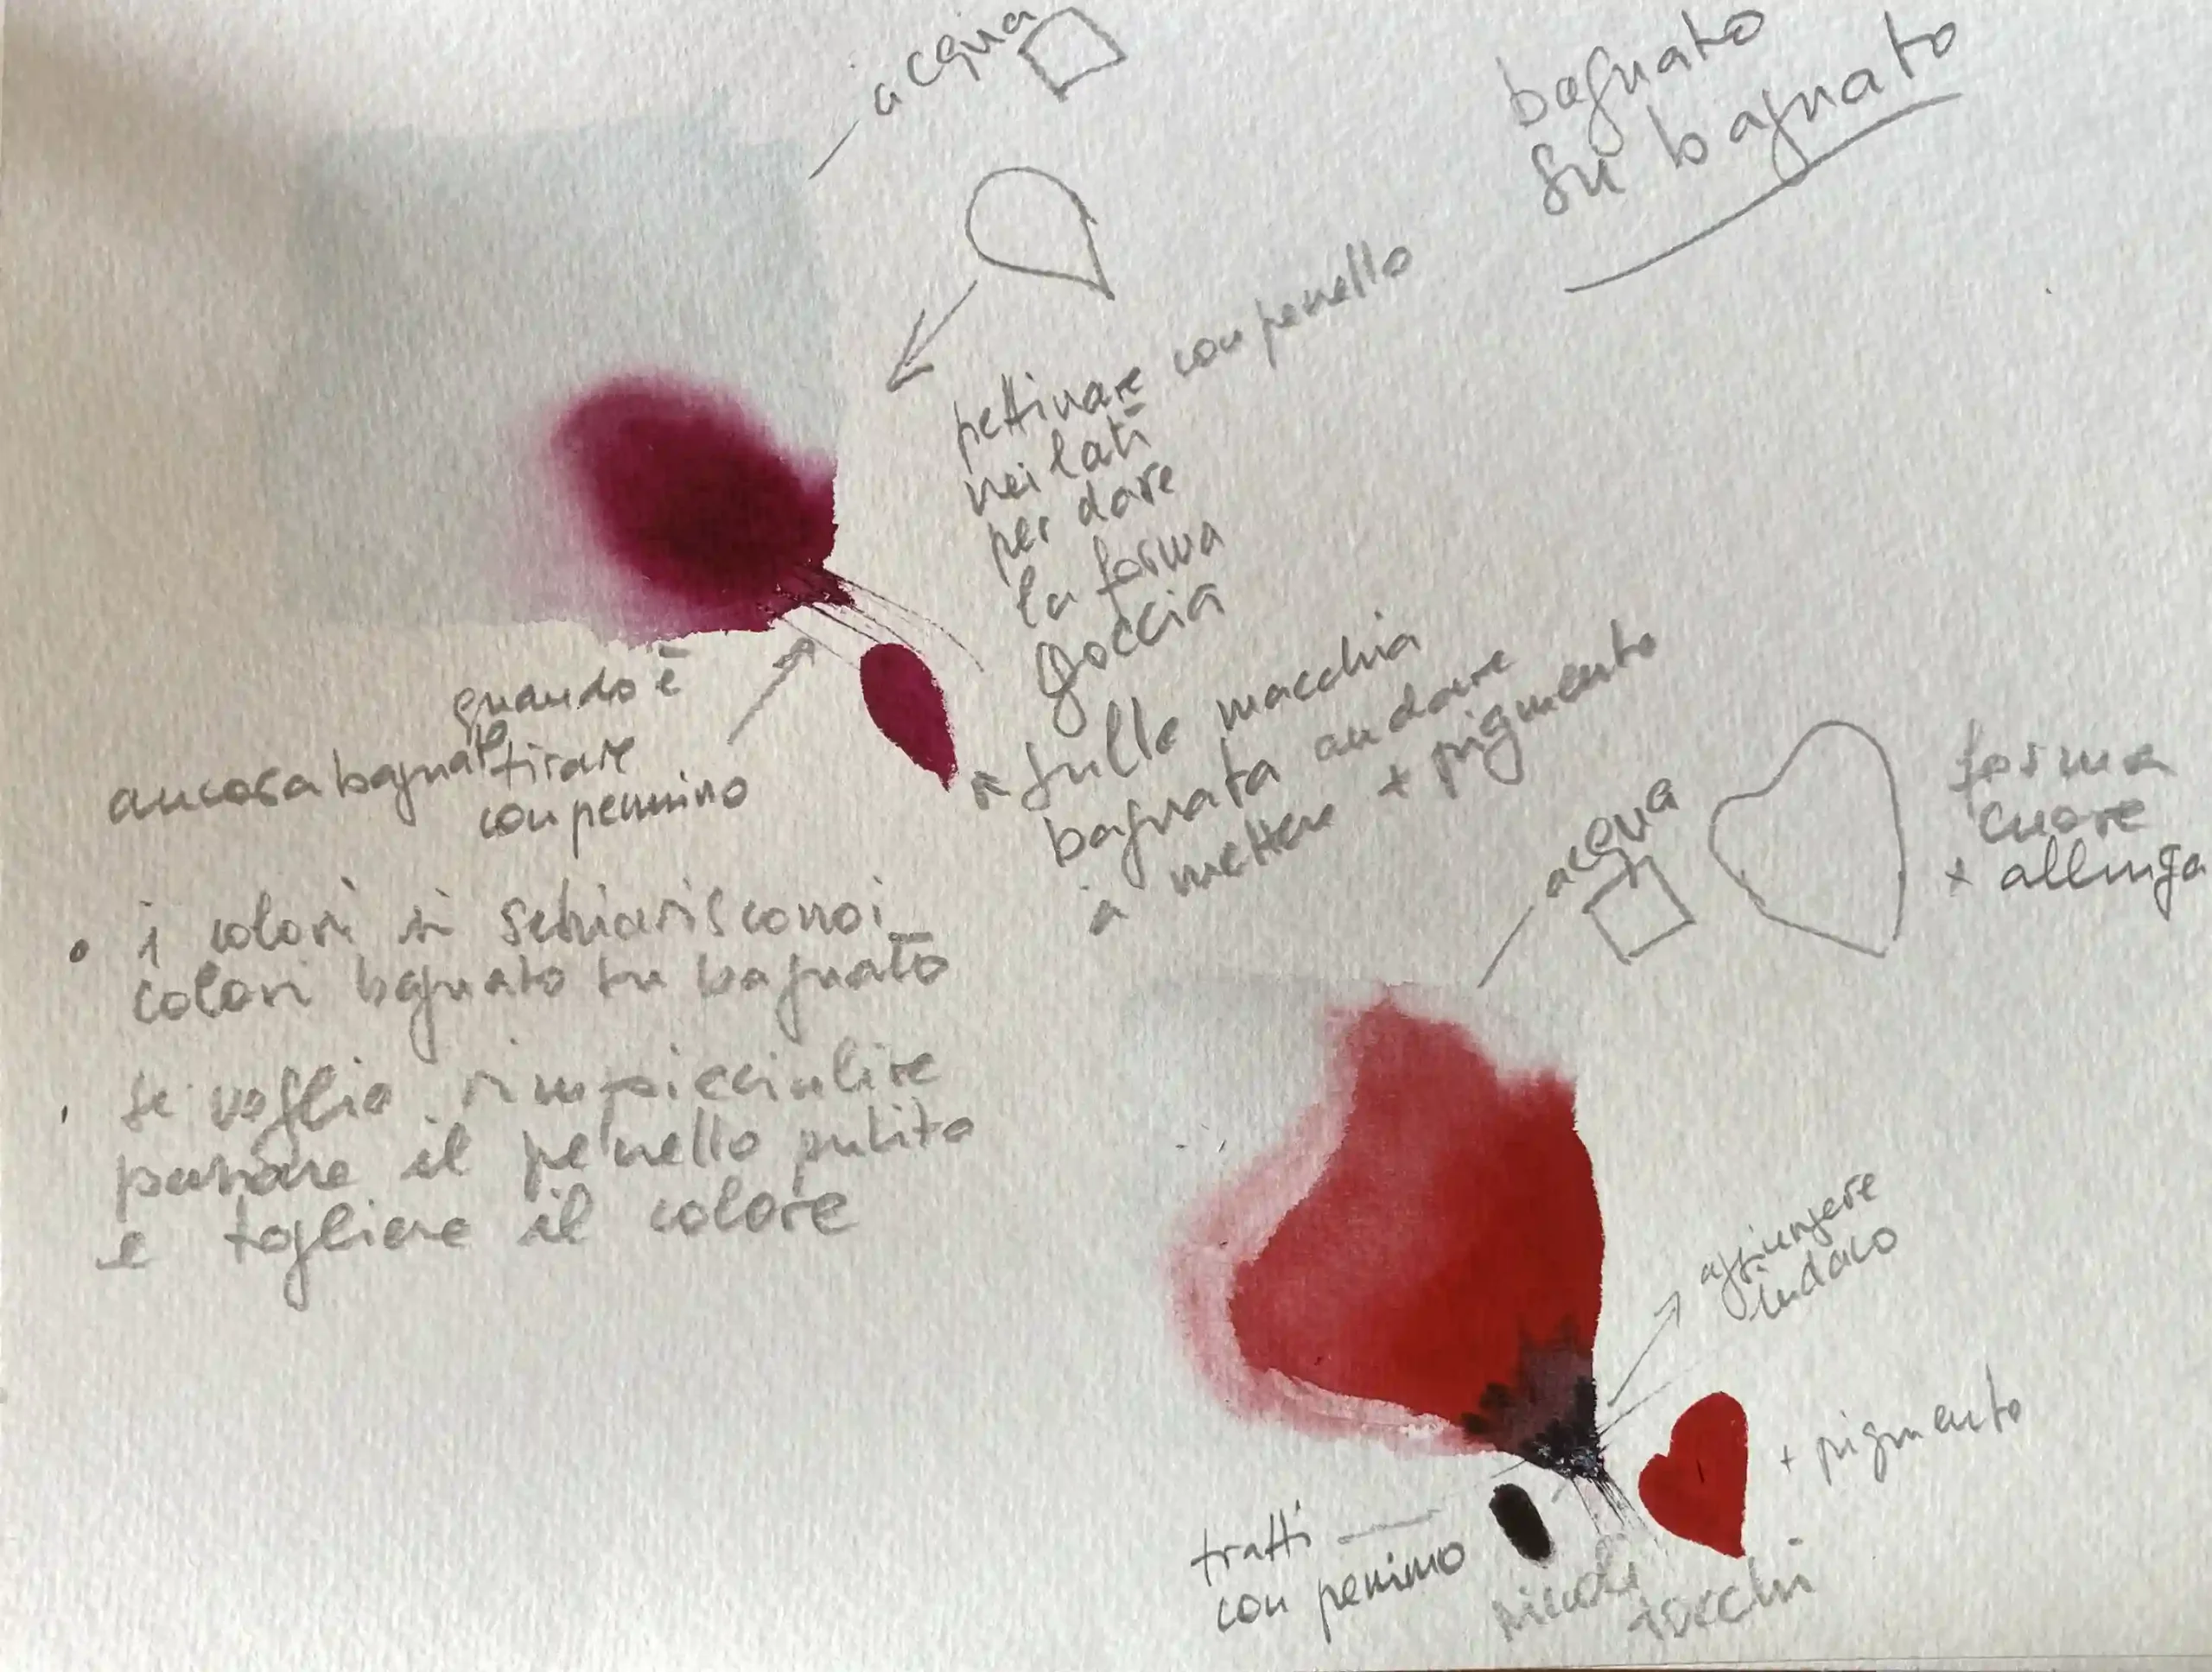 acqua
bagnato
su bagnato
pettinare con pennello
nei lati
per dare
la forma
goccia
sulla macchia
bagnata andare
a mettere + pigmento
quando è
ancora bagnato tirare
con pennino
• i colori si schiariscono i
colori bagnato su bagnato
• se voglio rimpicciolire
passare il pennello pulito
e togliere il colore
acqua
forma
cuore
+ allunga
aggiungere
indaco
+ pigmento
tratti
con pennino
piccoli
tocchi